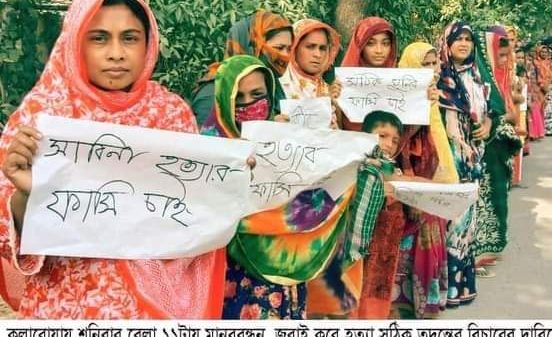 সঠিক খুনির
ফাসি চাই
সাবিনা হত্যার
ফাসি চাই
হত্যার
ফাসি
কলারোয়ায় শনিবার বেলা ১১টায় মানববন্ধন, জবাই করে হত্যা সঠিক তদন্তের বিচারের